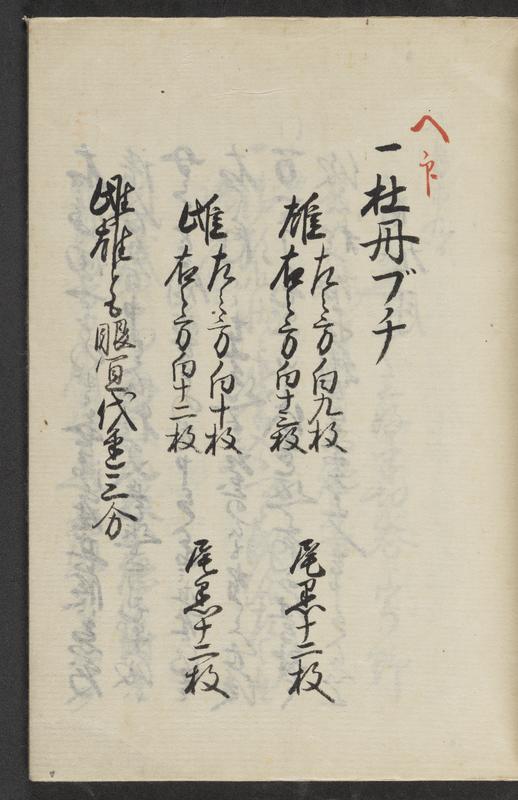 一杜丹ブチ
雄
左之方白九枚
右之方白十二枚
尾黒十二枚
雌
左之方白十枚
右之方白十二枚
尾黒十二枚
雌雄とも眼宜代金三分